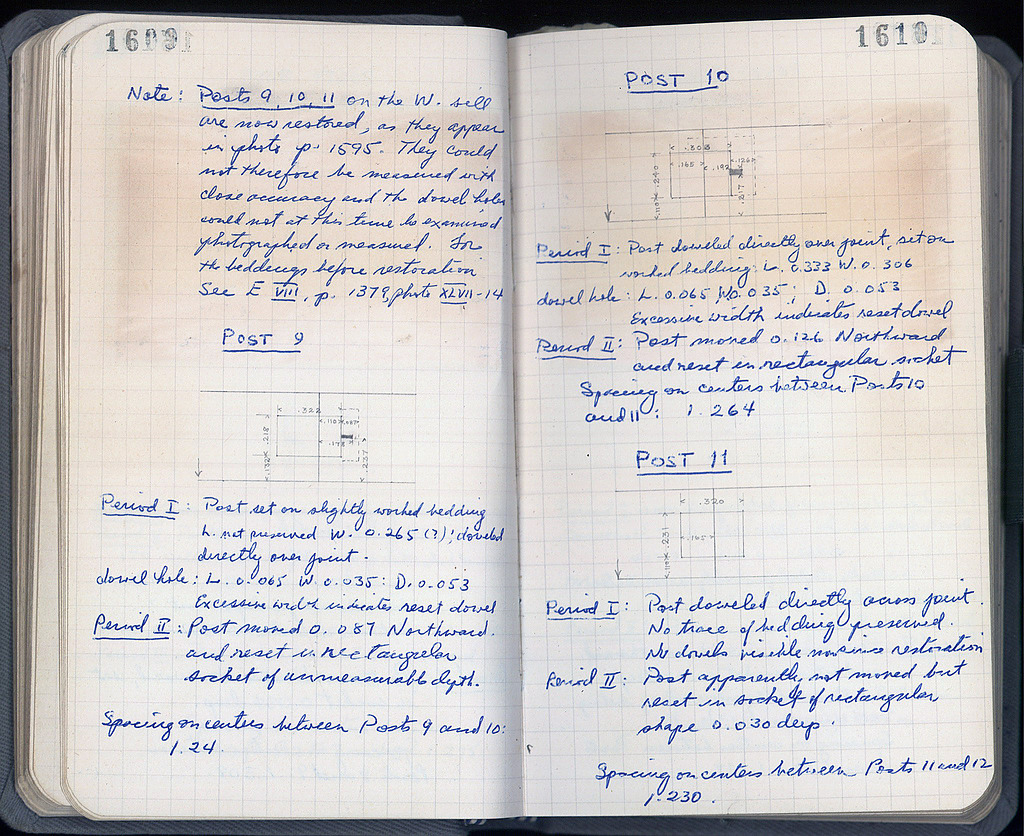 1609
Note: Posts 9, 10, 11 on the W. sill
are now restored, as they appear
in photo p. 1595. They could
not therefore be measured with
close accuracy and the dowel holes
could not at this time be examined
photographed or measured. For
the beddings before restoration
See E VIII, p. 1379, photo XLVII-14
POST 9
.322
.110 .087
.218
.178
.132
.237
Period I: Post set on slightly worked bedding
L. not preserved W. 0.265 (?); doweled
directly over joint.
dowel hole: L. 0.065 W. 0.035: D. 0.053
Excessive width indicates reset dowel
Period II: Post moved 0.087 Northward.
and reset in rectangular
socket of unmeasurable depth.
Spacing on centers between Posts 9 and 10:
1.24.
1610
POST 10
.303
.165 .192 .126
.240
.217
.110
Period I: Post doweled directly over joint, set on
worked bedding: L. 0.333 W. 0.306
dowel hole: L. 0.065; W. 0.035; D. 0.053
Excessive width indicates reset dowel
Period II: Post moved 0.126 Northward
and reset in rectangular socket
Spacing on centers between Posts 10
and 11: 1.264
POST 11
.320
.231
.165
.110
Period I: Post doweled directly across joint.
No trace of bedding preserved.
No dowels visible now since restoration
Period II: Post apparently not moved but
reset in socket of rectangular
shape 0.030 deep.
Spacing on centers between Posts 11 and 12
1.230.